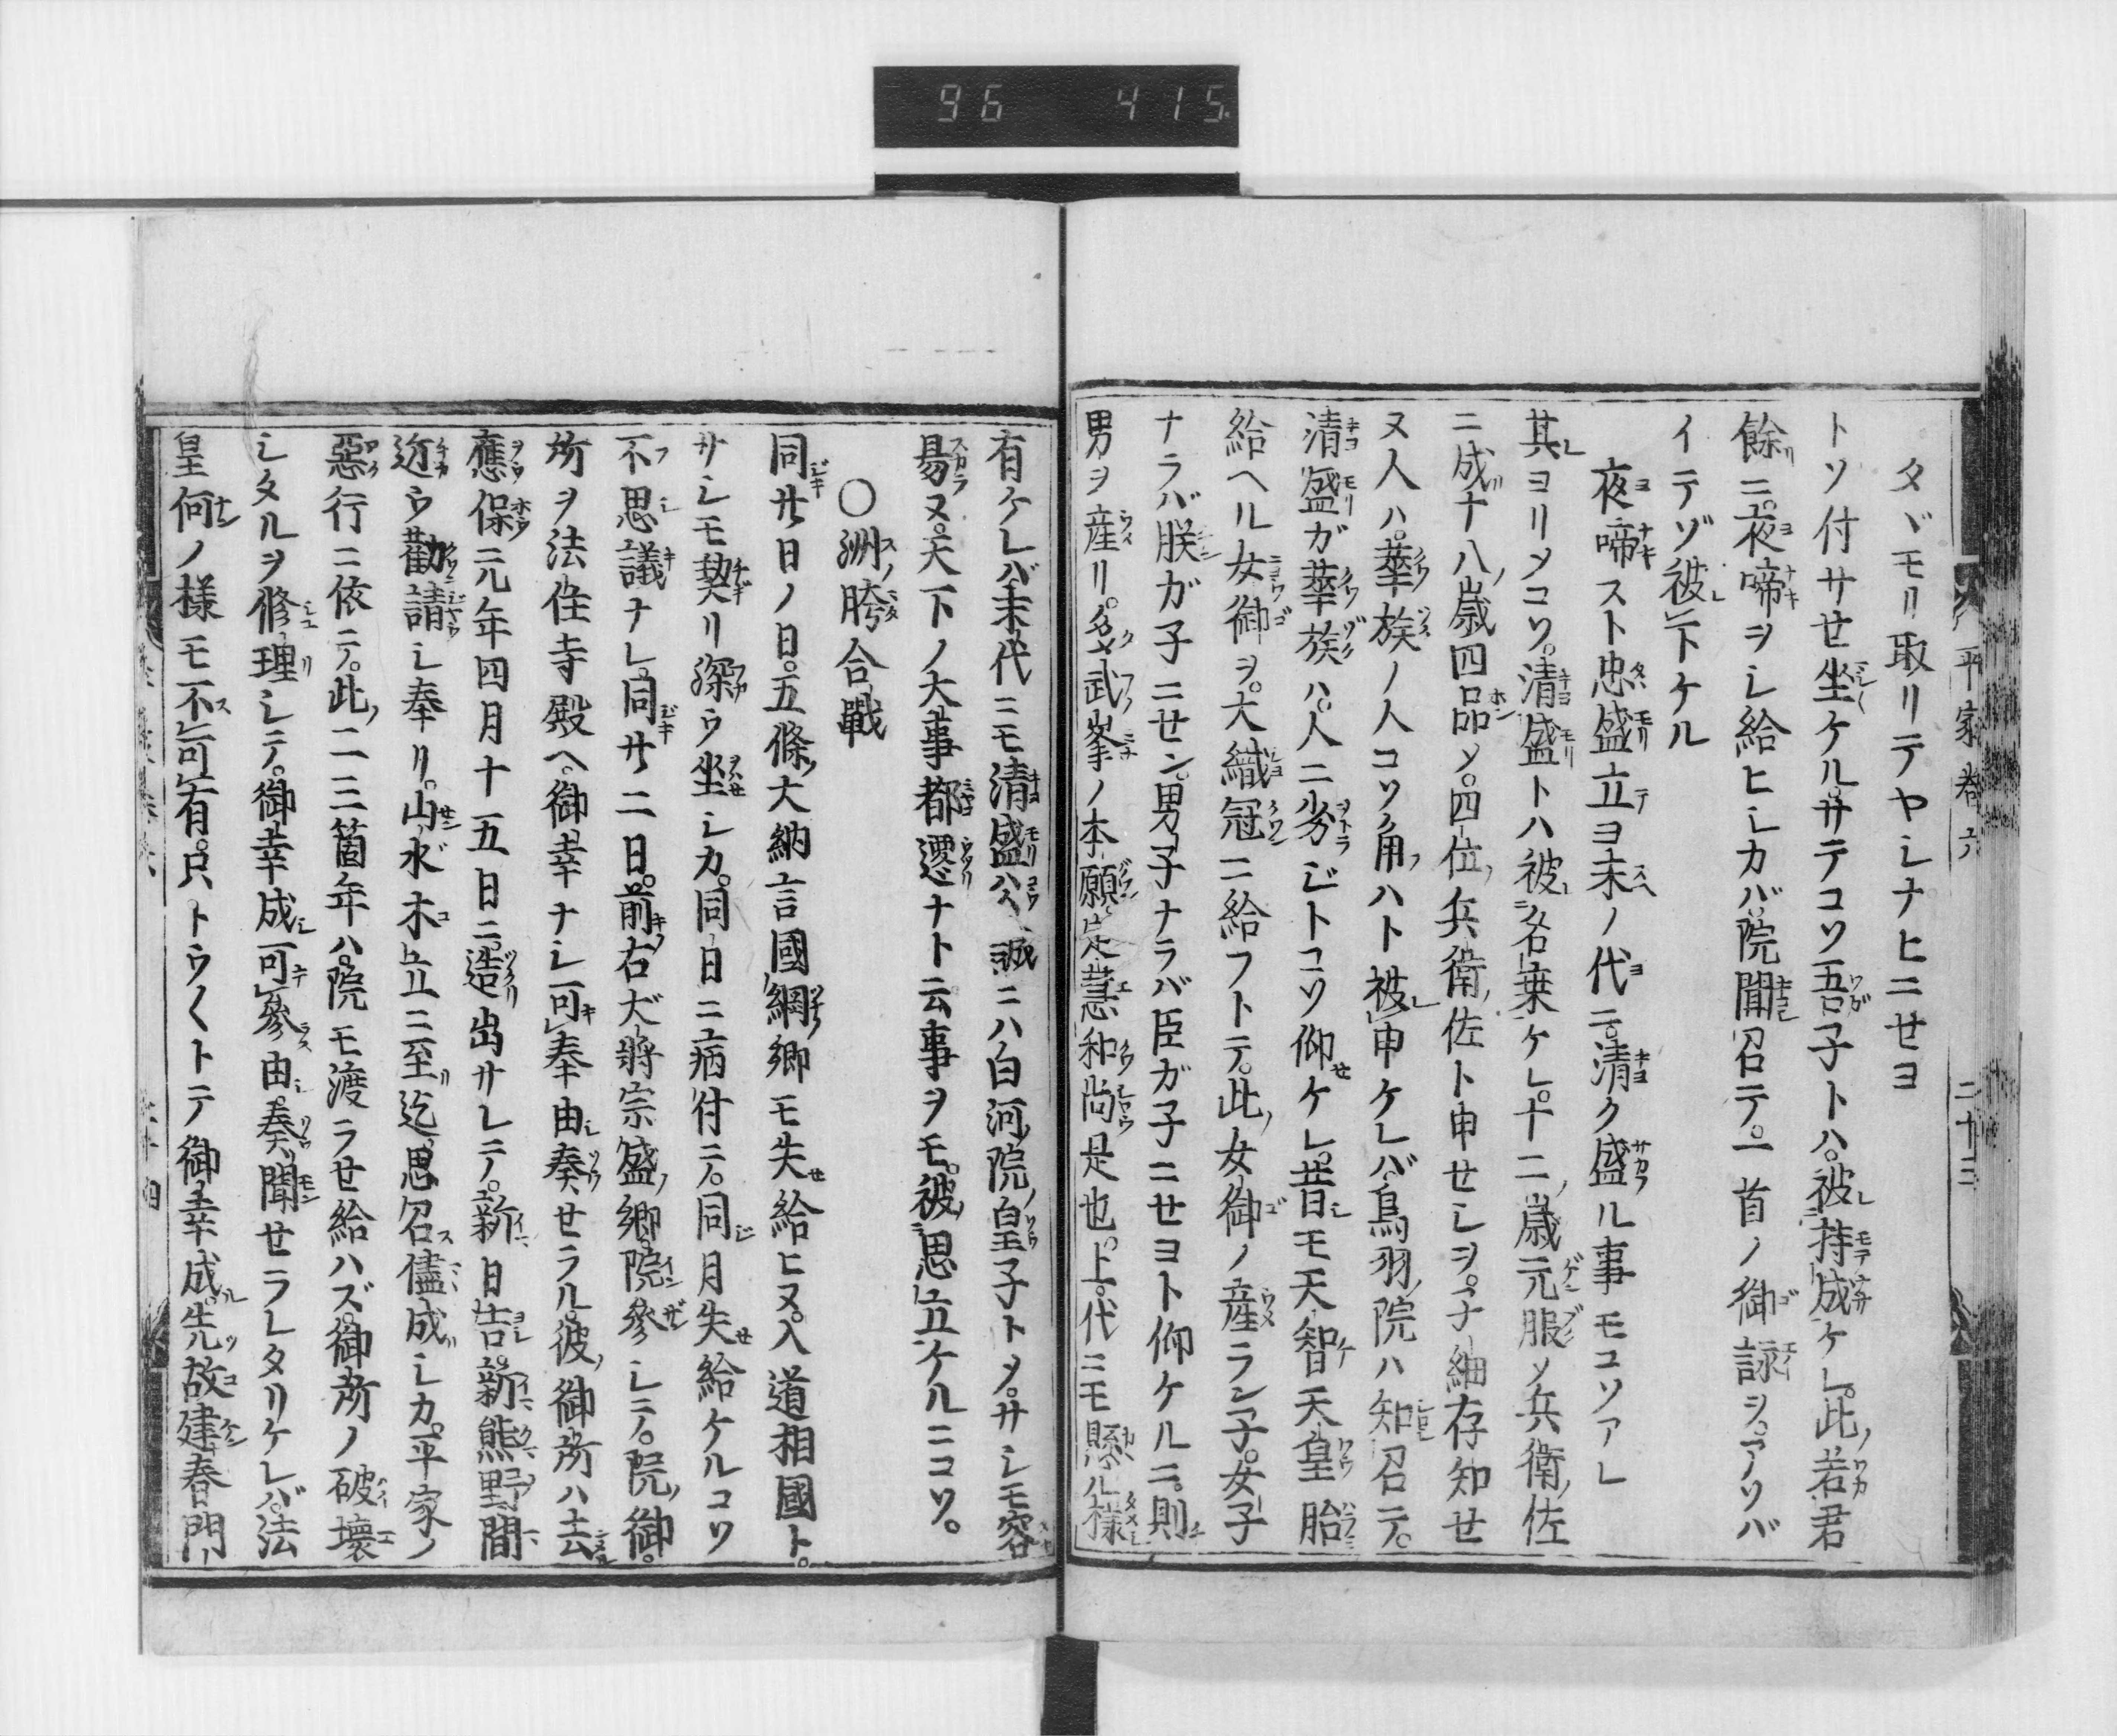 96 415
平家巻六 二十三
タヾモリ取リテヤシナヒニセヨ
トソ付サセ坐ケル。サテコソ吾子トハ。被持成ケレ。此若君
餘ニ。夜啼ヲシ給ヒシカバ。院聞召テ。一首ノ御詠ヲ。アソバ
イテゾ被下ケル
夜啼スト忠盛立ヨ末ノ代ニ。清ク盛ル事モコソアレ
其ヨリメコソ。清盛トハ被名乗ケレ。十二歳元服メ兵衛佐
ニ成。十八歳四品メ。四位兵衛佐ト申セシヲ。子細存知セ
ヌ人ハ。華族ノ人コソ角ハト被申ケレバ。鳥羽院ハ知召テ。
清盛ガ華族ハ。人ニ劣ジトコソ仰ケレ。昔モ天智天皇胎
給ヘル女御ヲ。大織冠ニ給フトテ。此女御ノ産ラン子。女子
ナラバ朕ガ子ニセン。男子ナラバ臣ガ子ニセヨト仰ケルニ。則
男ヲ産リ。多武峯ノ本願定慧和尚是也。上代ニモ懸ル様
有ケレバ末代ニモ清盛公。誠ニハ白河院皇子トメ。サシモ容
易ヌ。天下ノ大事都遷ナト云事ヲモ。被思立ケルニコソ。
〇洲胯合戰
同廿日ノ日。五條大納言國綱卿モ失給ヒヌ。入道相國ト。
サシモ契リ深ウ坐シカ。同日ニ病付ニ。同月失給ケルコソ
不思議ナレ。同廿二日。前右大將宗盛卿。院參シニ。院御
所ヲ法住寺殿ヘ。御幸ナシ可奉由奏セラル。彼御所ハ去
應保二元年四月十五日ニ造出サレニ。新日吉。新熊野間
近ウ勸請シ奉リ。山水木立ニ至迄思召儘成シカ。平家ノ
惡行ニ依テ。此二三箇年ハ。院モ渡ラセ給ハズ。御所ノ破壊
シタルヲ修理シテ。御幸成可參由。奏聞セラレタリケレバ。法
皇何ノ様モ不可有。只トウ〱トテ御幸成。先故建春門